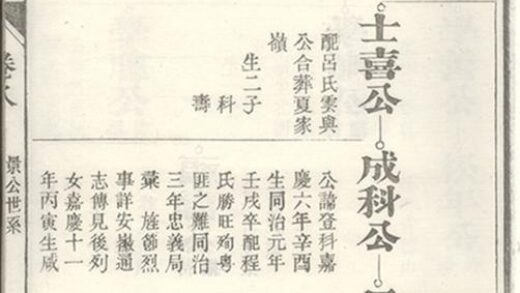 士喜公
配呂氏雯與
公合葬夏家
嶺
生二子
科
壽
成科公
公諱登科嘉
慶六年辛酉
生同治元年
壬戌卒配程
氏勝旺殉粵
匪之難同治
三年忠義局
彙旌節烈
事詳安徽通
志傳見後列
女嘉慶十一
年丙寅生咸
卷之八
景公世系